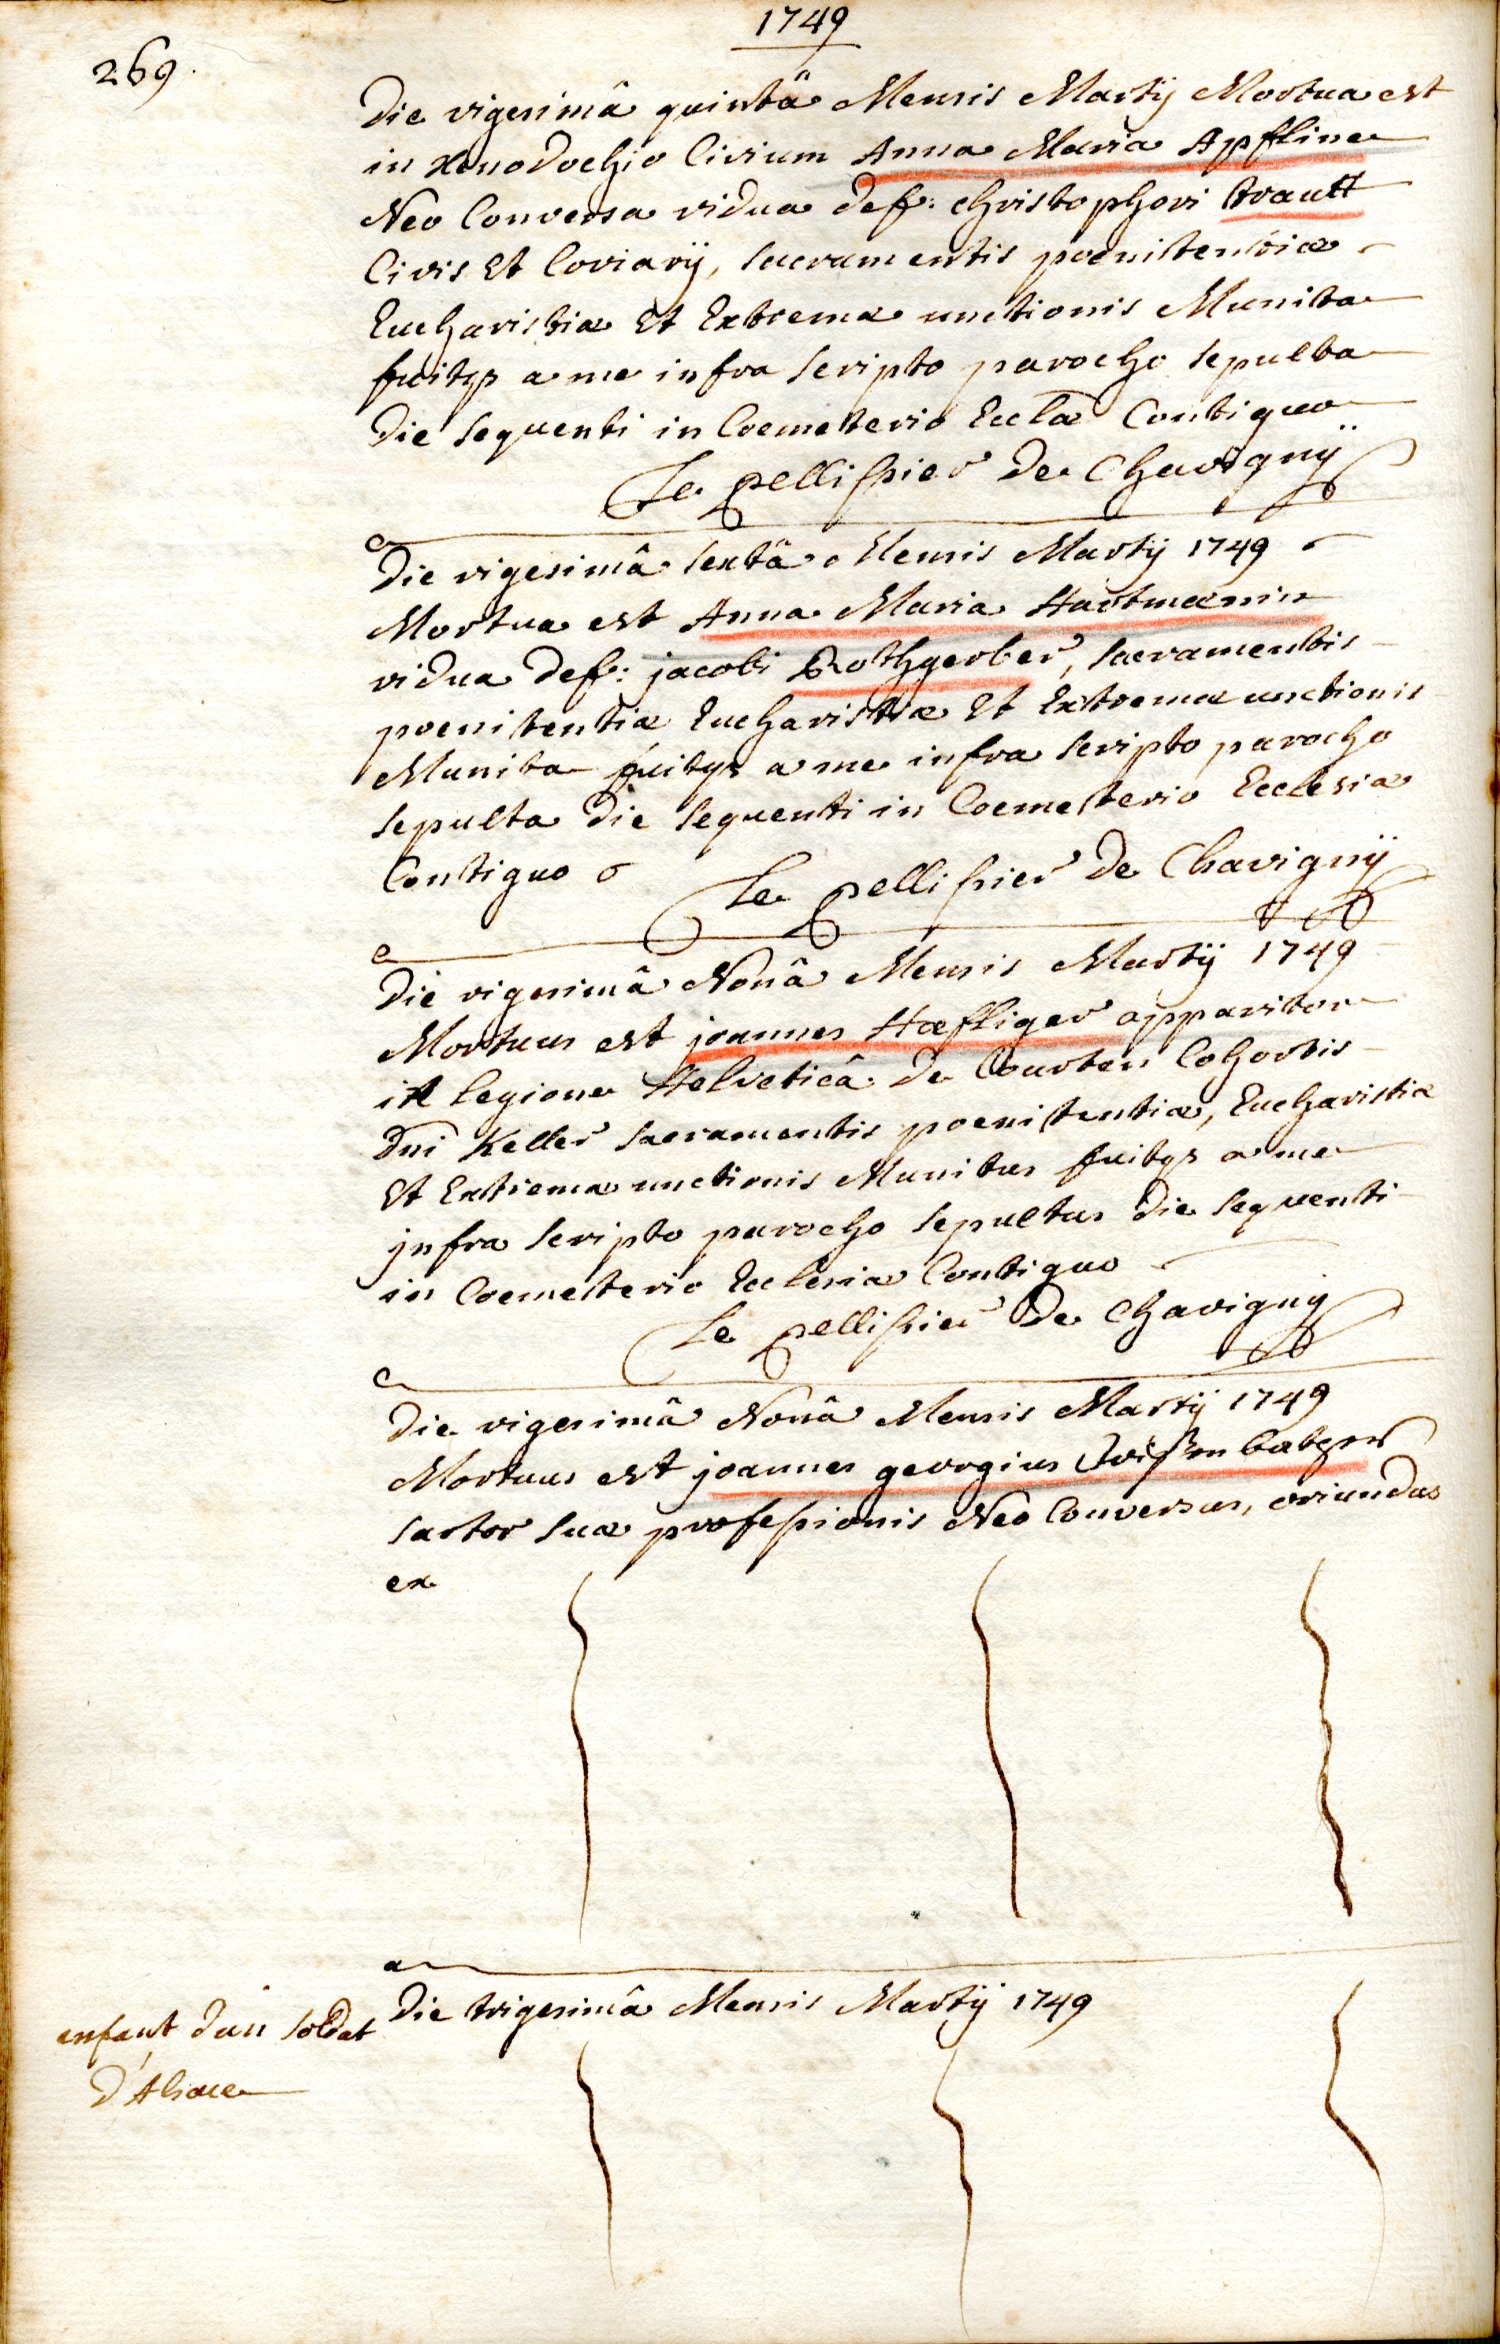 1749
269.
Die vigesimâ quintâ Mensis Martÿ Mortua est
in Xenodochio Civium Anna Maria Apffline
Neo Conversa vidua def: christophori Krautt
Civis Et Coriarÿ, sacramentis poenitentiæ
Eucharistiæ Et Extremæ unctionis Munita
fuitqs a me infra scripto parocho sepulta
Die sequenti in Coemeterio Ecclæ Contiguo
Le pellissier De Chavignÿ
Die vigesimâ sextâ Mensis Martÿ 1749
Mortua est Anna Maria Hartmænin
vidua def: jacobi Rothgerber, sacramentis
poenitentiæ Eucharistiæ Et Extremæ unctionis
Munita fuitqs a me infra scripto parocho
sepulta Die sequenti in Coemeterio Ecclesiæ
Contiguo
Le pellissier De Chavignÿ
Die vigesimâ Nonâ Mensis Martÿ 1749
Mortuus est joannes Hæffliger apparitor
in legione Helveticâ De Courten Cohortis
Dni Keller sacramentis poenitentiæ, Eucharistiæ
Et Extremæ unctionis Munitus fuitqs a me
jnfra scripto parocho sepultus Die sequenti
in Coemeterio Ecclesiæ Contiguo
Le pellissier De Chavigny
Die vigesimâ Nonâ Mensis Martÿ 1749
Mortuus est joannes georgius
sartor suæ professionis Neo Conversus, oriundus
ex
Die trigesimâ Mensis Martÿ 1749
enfant d'un soldat
D'Alsace